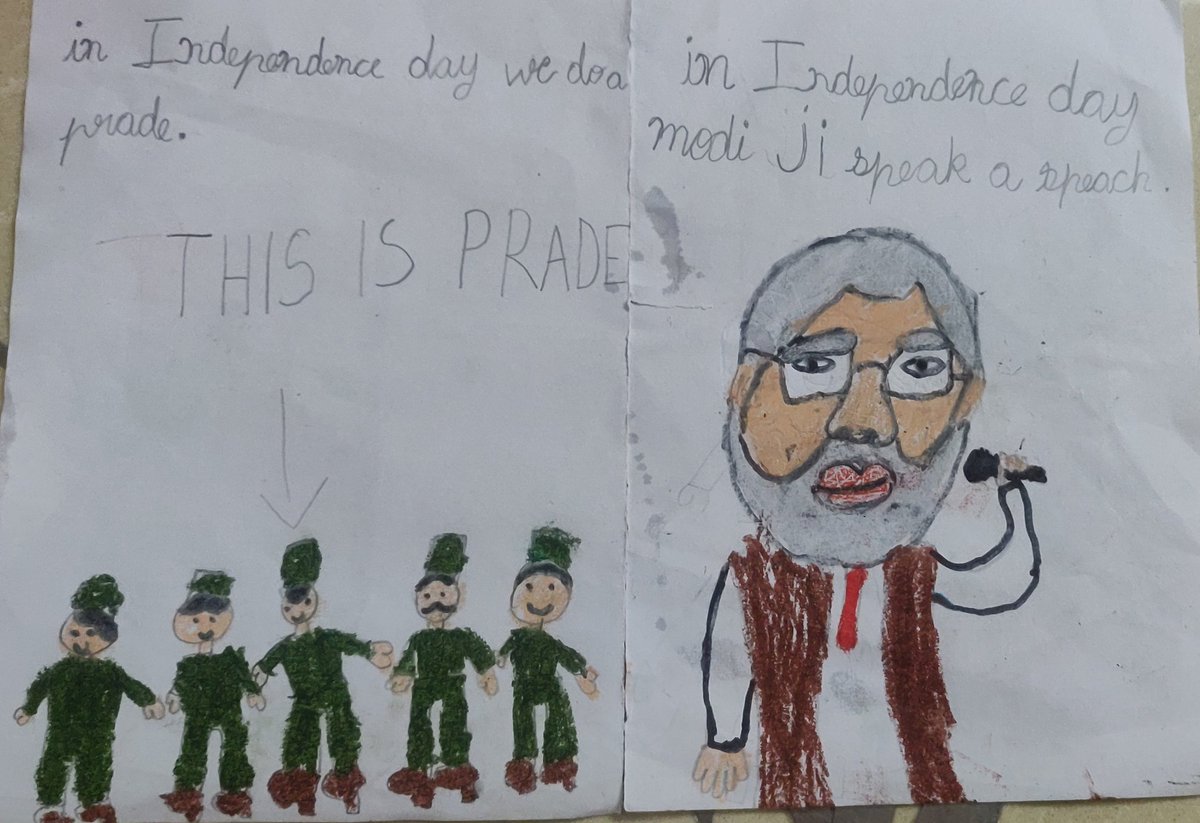 in Independence day we do a
prade.
THIS IS PRADE
in Independence day
modi ji speak a speach.